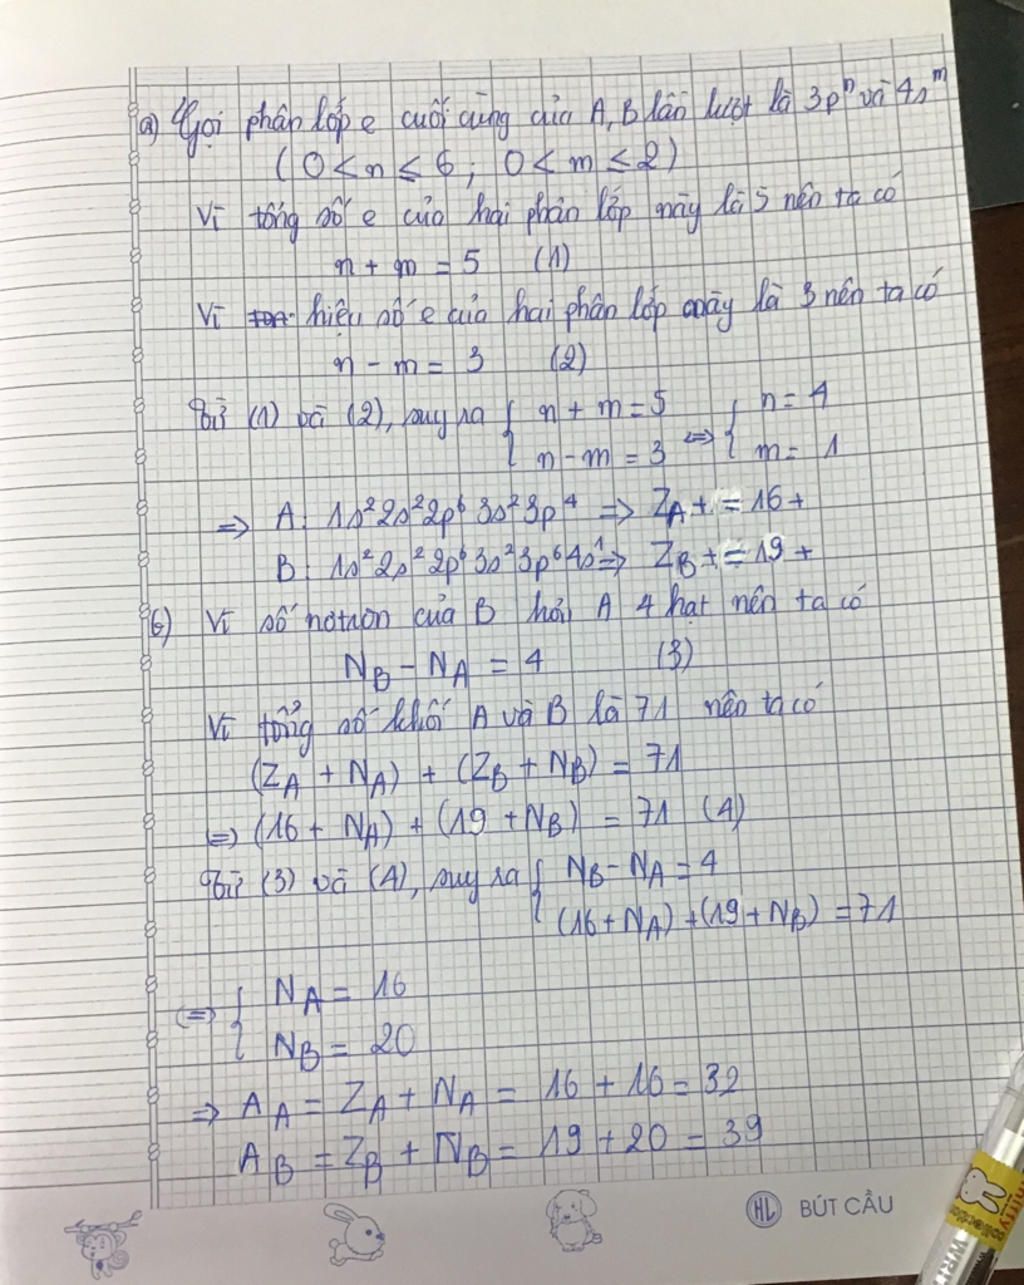 a) Gọi phân lớp e cuối cùng của A, B lần lượt là 3pⁿ và 4sᵐ
(0 < n ≤ 6 ; 0 < m ≤ 2)
Vì tổng số e của hai phân lớp này là 5 nên ta có
n + m = 5 (1)
Vì hiệu số e của hai phân lớp này là 3 nên ta có
n - m = 3 (2)
Từ (1) và (2), suy ra { n + m = 5 ⇔ { n = 4
n - m = 3 m = 1
=> A: 1s²2s²2p⁶3s²3p⁴ => Z_A+ = 16+
B: 1s²2s²2p⁶3s²3p⁶4s¹ => Z_B+ = 19+
b) Vì số nơtron của B hơn A 4 hạt nên ta có
N_B - N_A = 4 (3)
Vì tổng số khối A và B là 71 nên ta có
(Z_A + N_A) + (Z_B + N_B) = 71
⇔ (16 + N_A) + (19 + N_B) = 71 (4)
Từ (3) và (4), suy ra { N_B - N_A = 4
(16 + N_A) + (19 + N_B) = 71
⇔ { N_A = 16
N_B = 20
=> A_A = Z_A + N_A = 16 + 16 = 32
A_B = Z_B + N_B = 19 + 20 = 39
HL BÚT CẦU